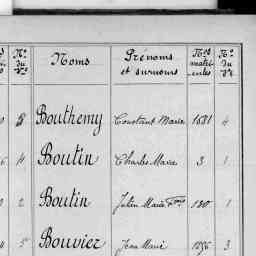 Nº du Vº Noms Prénoms et surnoms Nºs matri-cules Nº du Vº
8 Bouthemy Constant Marie 1581 4
4 Boutin Charles Marie 3 1
2 Boutin Julien Marie Fçois 180 1
5 Bouvier Jean Marie 1896 3